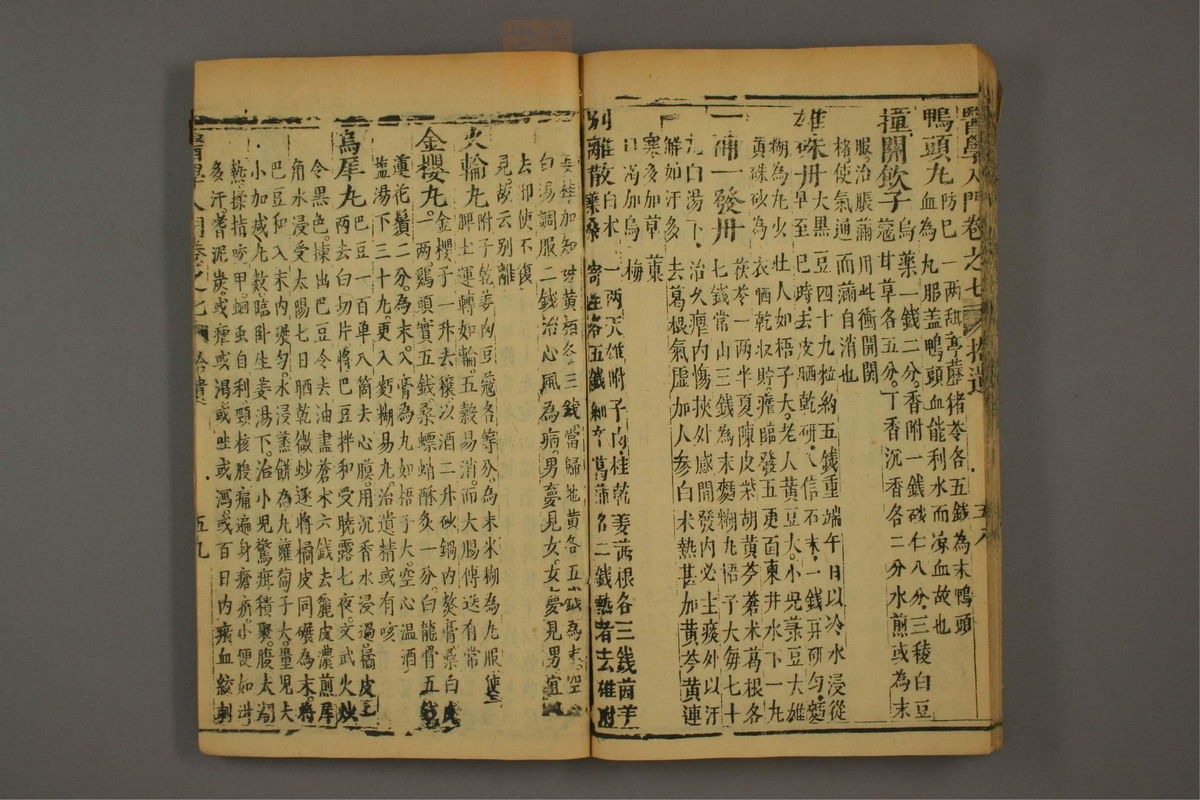 醫學入門卷之七 拾遺 五八
鴨頭丸 防巳一兩甜葶藶猪苓各五錢為末鴨頭
血為丸服盖鴨頭血能利水而凉血故也
撞關飲子 烏藥一錢二分香附一錢砂仁八分三稜白豆
蔻甘草各五分丁香沉香各二分水煎或為末
服治脹滿用此衝開関
格使氣通而滿自消也
雄硃丹 大黑豆四十九粒約五錢重端午日以冷水浸從
早至巳時去皮晒乾研入信石末一錢再研勻麵
糊為丸少壯人如梧子大老人黃豆大小兒菉豆大雄
黃硃砂為衣晒乾収貯瘧臨發五更面東井水下一丸
一補一發丹 茯苓一兩半夏陳皮柴胡黃芩蒼朮葛根各
七錢常山三錢為末麵糊丸梧子大每七十
丸白湯下治久瘧內傷挾外感間發內必主痰外以汗
解如汗多去葛根氣虛加人參白朮熱甚加黃芩黃連
寒多加草菓
口渴加烏梅
別離散 白朮一兩天雄附子肉桂乾姜茜根各三錢茵芋
葉桑寄生各五錢細辛菖蒲各二錢熱者去雄附
姜桂加知母黃栢各三錢當歸地黃各五錢為末空心
白湯調服二錢治心風為病男夢見女女夢見男宜
去卻使不復
見故云別離
火輪丸 附子乾姜肉豆蔻各等分為末米糊為丸服使
脾土運轉如輪五穀易消而大腸傳送有常
金櫻丸 金櫻子一升去穰以酒二升砂鍋內熬膏桑白皮
一兩鷄頭實五錢桑螵蛸酥灸一分白龍骨五錢
蓮花鬚二分為末入膏為丸如梧子大空心温酒
鹽湯下三十丸更入麵糊易丸治遺精或有咳
烏犀丸 巴豆一百單八箇去心膜用沉香水浸過橘皮
兩去白切片將巴豆拌和受曉露七夜文武火炒
令黑色揀出巴豆令去油盡蒼朮六錢去麄皮濃煎犀
角水浸受太陽七日晒乾微炒逐將橘皮同碾為末將
巴豆和入末內碾勻水浸蒸餅為丸蘿蔔子大量兒大
小加减丸數臨卧生姜湯下治小兒驚疳積聚腹大潮
熱揉指咬甲蛔虫自利頸核腹痛遍身瘡疥小便如泔
多汗嗜泥炭或瘧或渴或吐或瀉或百日內瘀血絞刺
醫學入門卷之七 拾遺 五九